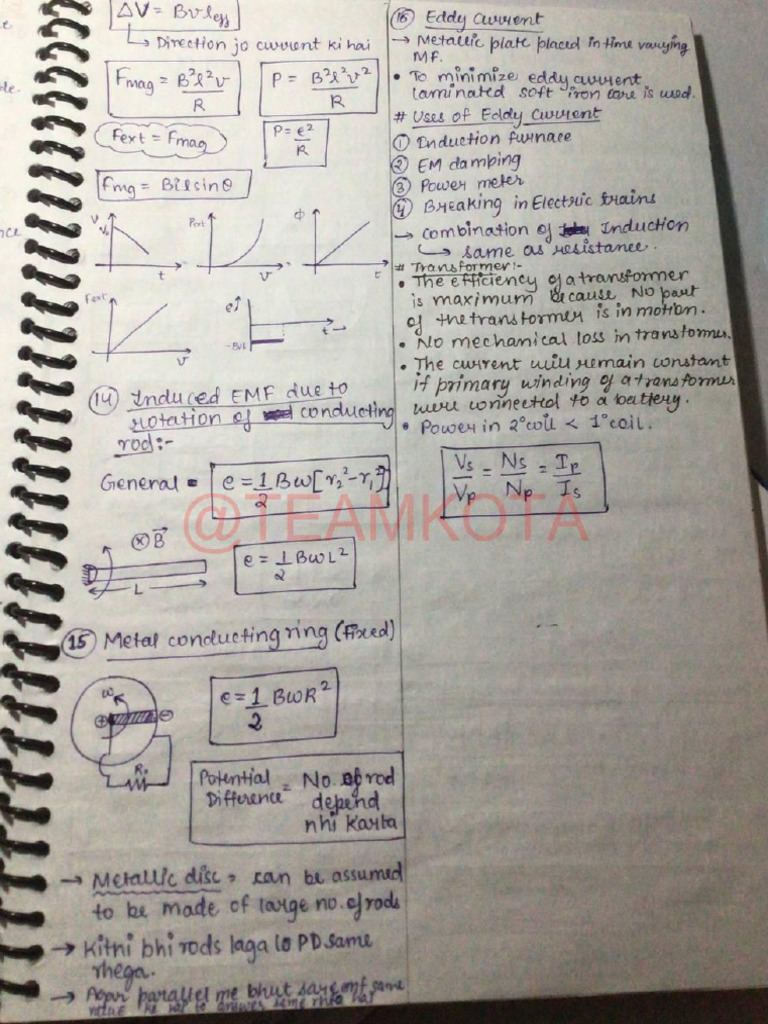 ΔV = Bvl_eff
↳ Direction jo current ki hai
F_mag = B²l²v/R
P = B²l²v²/R
F_ext = F_mag
P = e²/R
F_mg = Bil sin θ
V
V₀
t
P_ext
v
ϕ
t
F_ext
v
e↑
t→
-Bvl
14 Induced EMF due to
rotation of conducting
rod:-
General = e = 1/2 Bω[r₂² - r₁²]
@TEAMKOTA
⊗ B⃗
L
e = 1/2 BωL²
15 Metal conducting ring (Fixed)
ω
⊕ ⊖
R
e = 1/2 BωR²
Potential Difference = No. of rod
depend
nhi karta
→ Metallic disc = can be assumed
to be made of large no. of rods
→ Kitni bhi rods laga lo PD same
rhega.
→ Agar parallel me bhut sare emf same
value ke to answer same
16 Eddy Current
→ Metallic plate placed in time varying
MF.
• To minimize eddy current
laminated soft iron core is used.
# Uses of Eddy Current
1 Induction furnace
2 EM damping
3 Power meter
4 Breaking in Electric trains
→ combination of Induction
↳ same as resistance.
# Transformer:-
• The efficiency of a transformer
is maximum because No part
of the transformer is in motion.
• No mechanical loss in transformer.
• The current will remain constant
if primary winding of a transformer
were connected to a battery.
• Power in 2° coil < 1° coil.
Vs/Vp = Ns/Np = Ip/Is